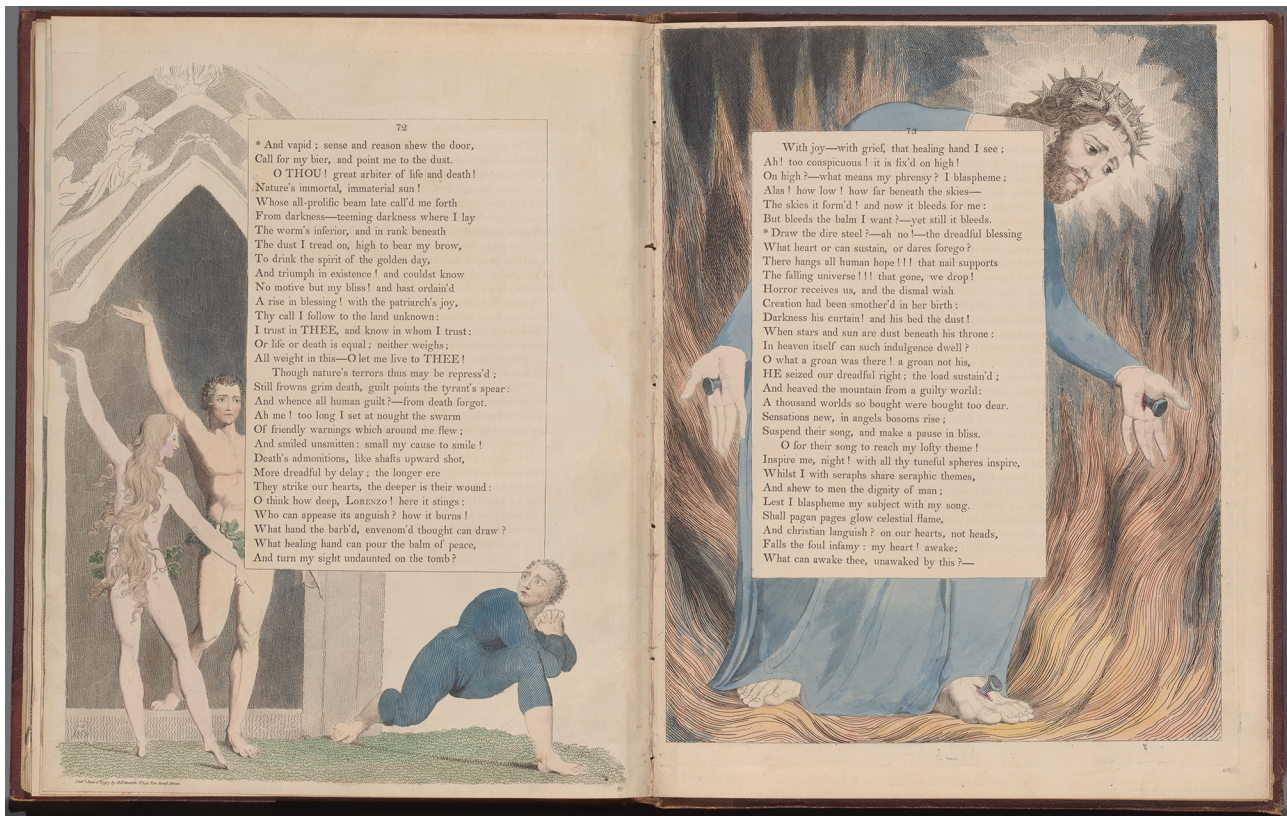 72
* And vapid ; sense and reason shew the door,
Call for my bier, and point me to the dust.
O THOU ! great arbiter of life and death !
Nature's immortal, immaterial sun !
Whose all-prolific beam late call'd me forth
From darkness—teeming darkness where I lay
The worm's inferior, and in rank beneath
The dust I tread on, high to bear my brow,
To drink the spirit of the golden day,
And triumph in existence ! and couldst know
No motive but my bliss ! and hast ordain'd
A rise in blessing ! with the patriarch's joy,
Thy call I follow to the land unknown :
I trust in THEE, and know in whom I trust :
Or life or death is equal ; neither weighs ;
All weight in this—O let me live to THEE !
Though nature's terrors thus may be repress'd ;
Still frowns grim death, guilt points the tyrant's spear :
And whence all human guilt ?—from death forgot.
Ah me ! too long I set at nought the swarm
Of friendly warnings which around me flew ;
And smiled unsmitten : small my cause to smile !
Death's admonitions, like shafts upward shot,
More dreadful by delay ; the longer ere
They strike our hearts, the deeper is their wound :
O think how deep, LORENZO ! here it stings :
Who can appease its anguish ? how it burns !
What hand the barb'd, envenom'd thought can draw ?
What healing hand can pour the balm of peace,
And turn my sight undaunted on the tomb ?
73
With joy—with grief, that healing hand I see ;
Ah ! too conspicuous ! it is fix'd on high !
On high ?—what means my phrensy ? I blaspheme ;
Alas ! how low ! how far beneath the skies—
The skies it form'd ! and now it bleeds for me :
But bleeds the balm I want ?—yet still it bleeds.
* Draw the dire steel ?—ah no !—the dreadful blessing
What heart or can sustain, or dares forego ?
There hangs all human hope ! ! ! that nail supports
The falling universe ! ! ! that gone, we drop !
Horror receives us, and the dismal wish
Creation had been smother'd in her birth :
Darkness his curtain ! and his bed the dust !
When stars and sun are dust beneath his throne :
In heaven itself can such indulgence dwell ?
O what a groan was there ! a groan not his,
HE seized our dreadful right ; the load sustain'd ;
And heaved the mountain from a guilty world :
A thousand worlds so bought were bought too dear.
Sensations new, in angels bosoms rise ;
Suspend their song, and make a pause in bliss.
O for their song to reach my lofty theme !
Inspire me, night ! with all thy tuneful spheres inspire,
Whilst I with seraphs share seraphic themes,
And shew to men the dignity of man ;
Lest I blaspheme my subject with my song.
Shall pagan pages glow celestial flame,
And christian languish ? on our hearts, not heads,
Falls the foul infamy : my heart ! awake ;
What can awake thee, unawaked by this ?—